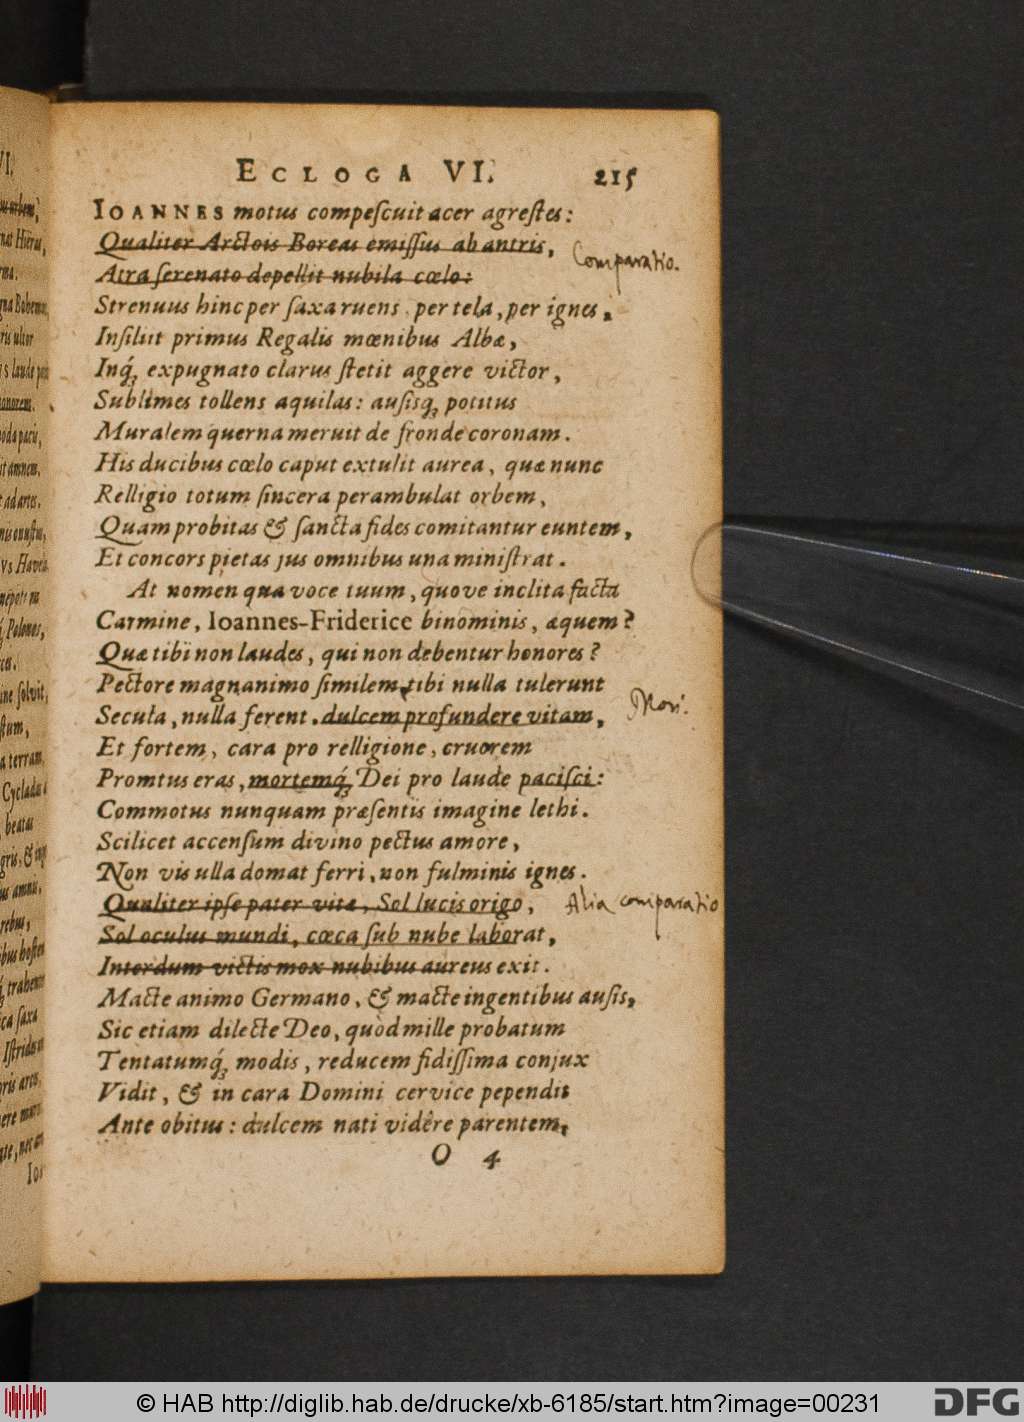 ECLOGA VI. 215
IOANNES motus compeſcuit acer agreſtes:
Qualiter Arctois Boreas emiſſus ab antris,
Comparatio.
Atra ſerenato depellit nubila cœlo:
Strenuus hinc per ſaxa ruens per tela, per ignes,
Inſiliit primus Regalis mœnibus Albæ,
Inq́; expugnato clarus ſtetit aggere victor,
Sublimes tollens aquilas: auſisq; potitus
Muralem querna meruit de fronde coronam.
His ducibus cœlo caput extulit aurea, quæ nunc
Relligio totum ſincera perambulat orbem,
Quam probitas & ſancta fides comitantur euntem,
Et concors pietas jus omnibus una miniſtrat.
At nomen qua voce tuum, quove inclita facta
Carmine, Ioannes-Friderice binominis, æquem?
Quæ tibi non laudes, qui non debentur honores?
Pectore magnanimo ſimilem tibi nulla tulerunt
Secula, nulla ferent. dulcem profundere vitam,
Mori.
Et fortem, cara pro relligione, cruorem
Promtus eras, mortemq́; Dei pro laude paciſci:
Commotus nunquam præſentis imagine lethi.
Scilicet accenſum divino pectus amore,
Non vis ulla domat ferri, non fulminis ignes.
Qualiter ipſe pater vitæ, Sol lucis origo,
Alia comparatio
Sol oculus mundi, cœca ſub nube laborat,
Interdum victis mox nubibus aureus exit.
Macte animo Germano, & macte ingentibus auſis,
Sic etiam dilecte Deo, quòd mille probatum
Tentatumq́; modis, reducem fidiſſima conjux
Vidit, & in cara Domini cervice pependit
Ante obitus: dulcem nati vidêre parentem,
O 4
© HAB http://diglib.hab.de/drucke/xb-6185/start.htm?image=00231
DFG